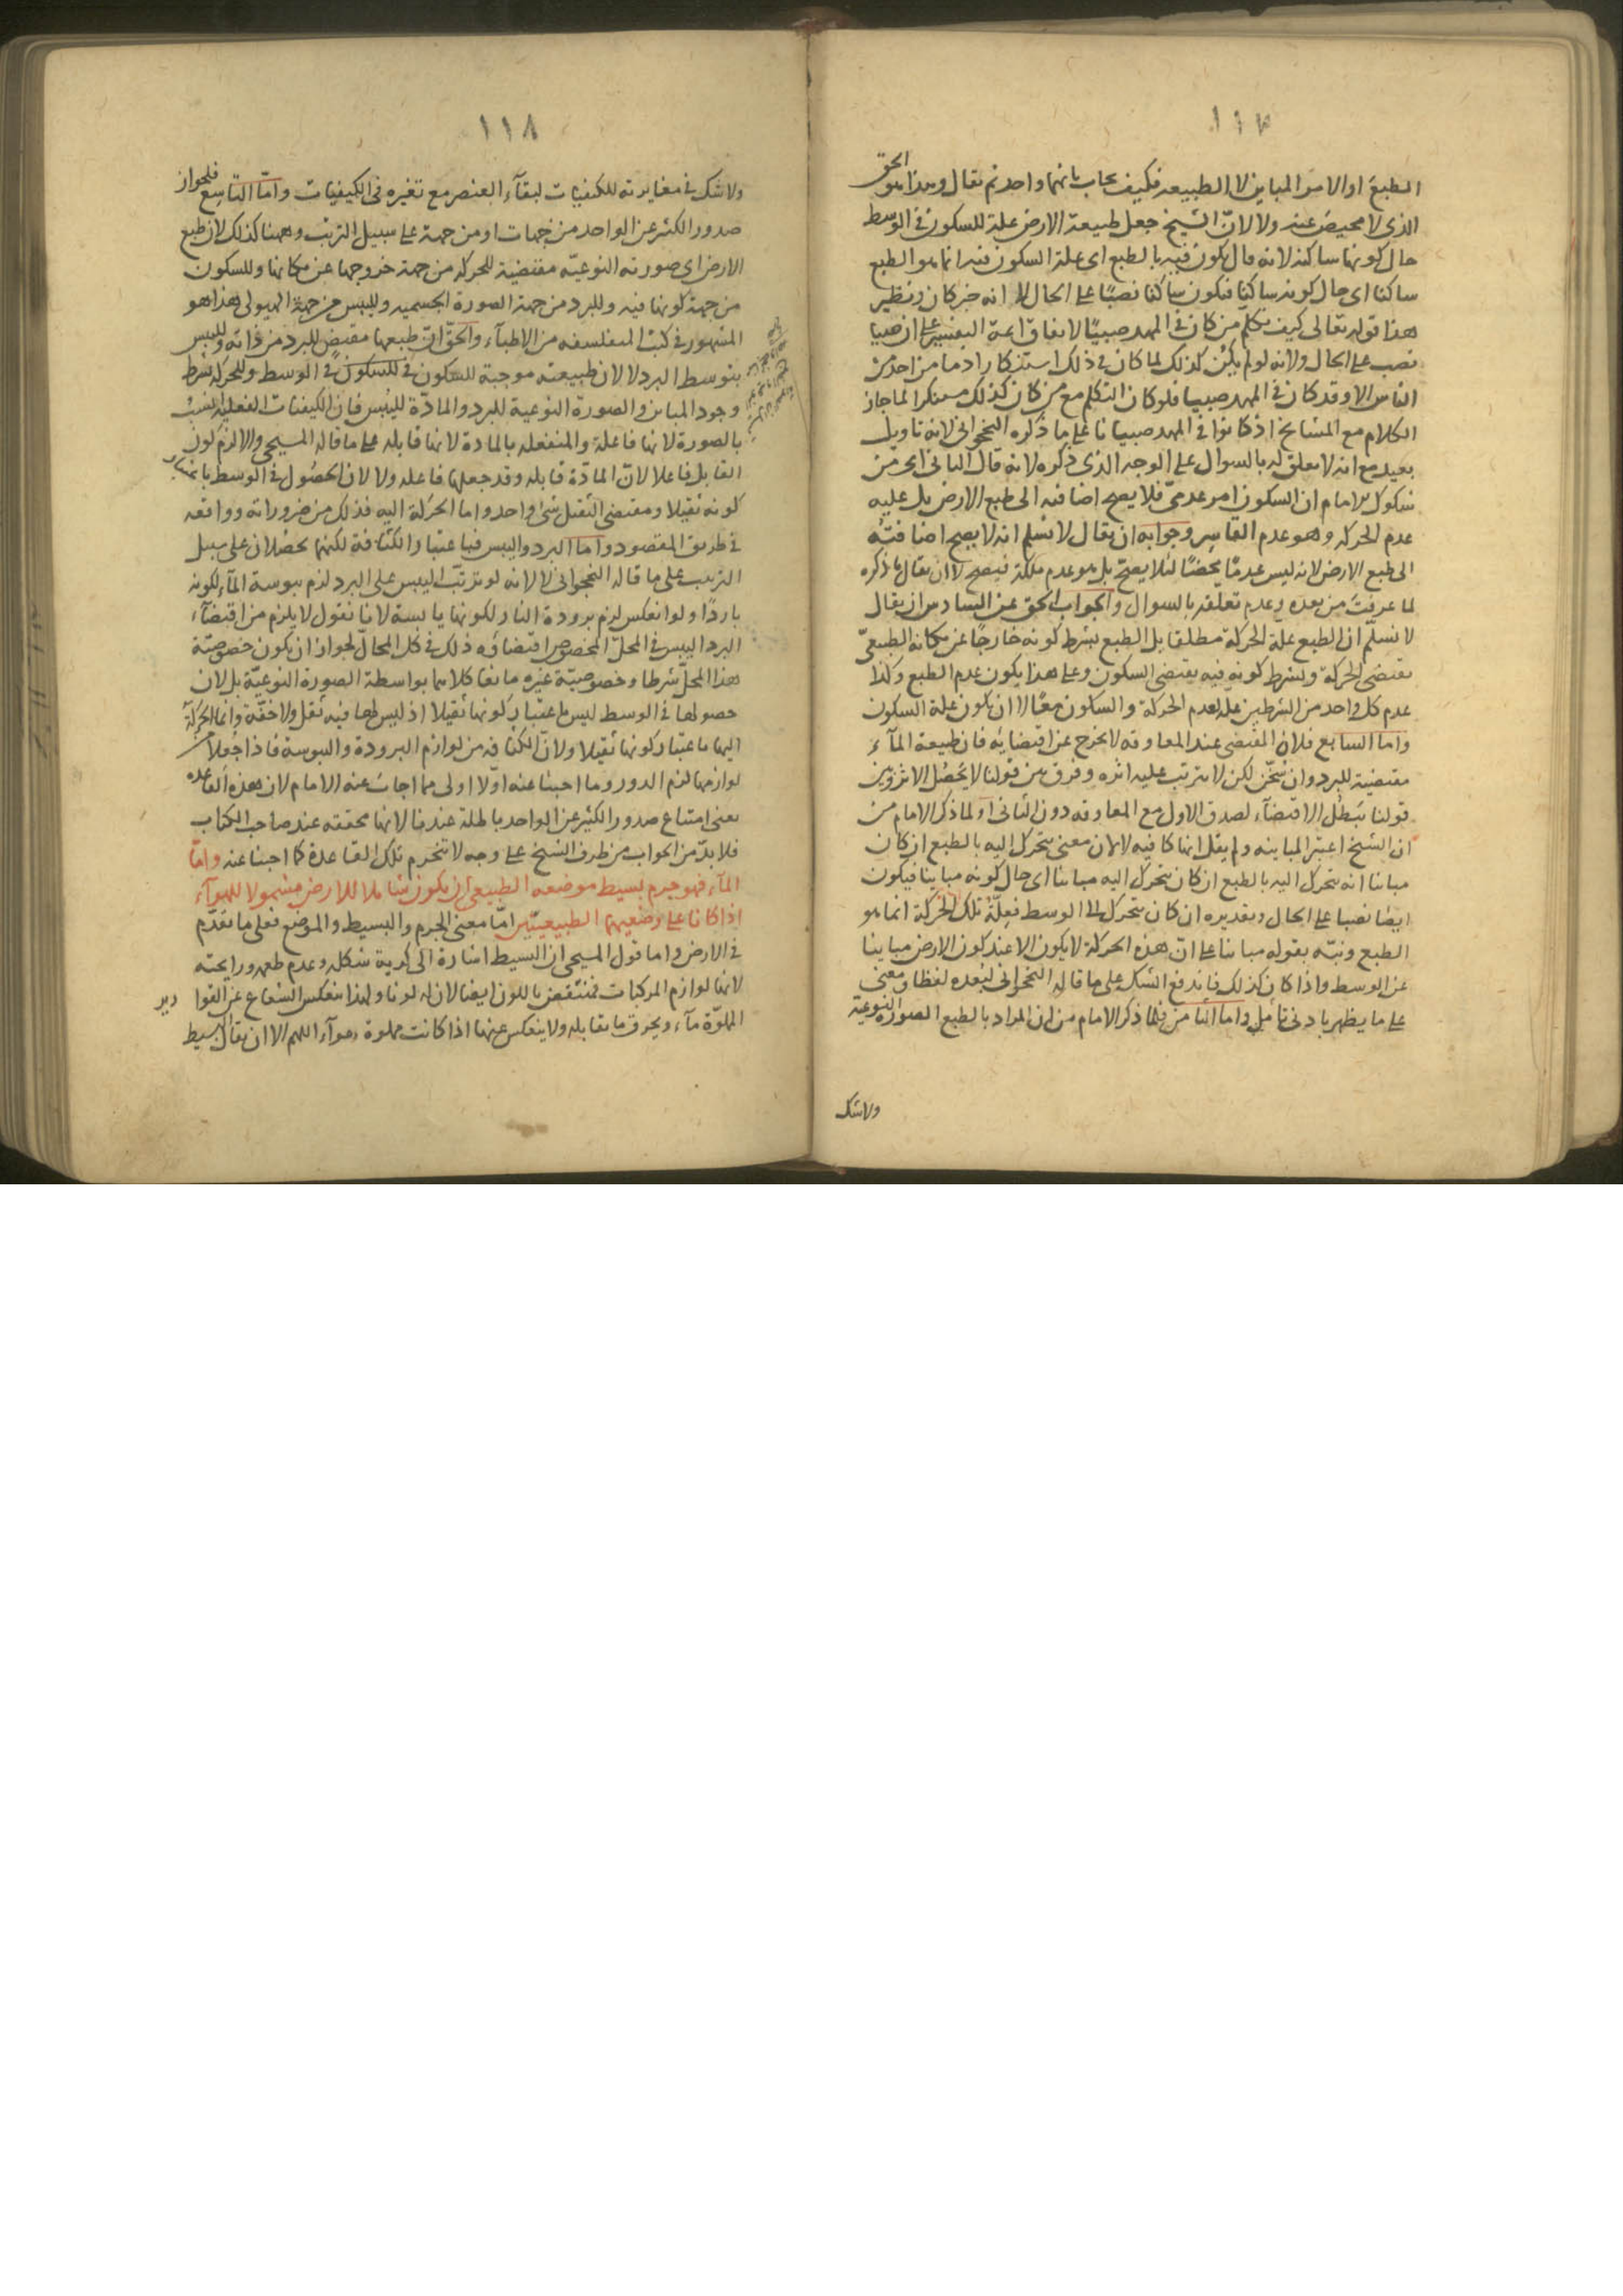 ١١٧
الطبع او الامر المباين لا الطبيعة فكيف يجاب بانهما واحد ثم يقال وهذا هو الحق
الذى لا محيص عنه ولا لان الشيخ جعل طبيعة الارض علة للسكون فى الوسط
حال كونها ساكنة لانه قال يكون فيه بالطبع اى علة السكون فيه انما هو الطبع
ساكنا اى حال كونه ساكنا فيكون ساكنا نصبا على الحال لا انه خبر كان ونظير
هذا قوله تعالى كيف نكلم من كان فى المهد صبيا لاتفاق ائمة التفسير على ان صبيا
نصب على الحال ولانه لو لم يكن كذلك لما كان فى ذلك استنكار اذ ما من احد من
الناس الا وقد كان فى المهد صبيا فلو كان التكلم مع من كان كذلك مستنكرا لما جاز
الكلام مع المشايخ اذ كانوا فى المهد صبيانا على ما ذكره النخجوانى لانه تاويل
بعيد مع انه لا تعلق له بالسوال على الوجه الذى ذكره لانه قال الثانى اى من
شكوك الامام ان السكون امر عدمى فلا يصح اضافته الى طبع الارض بل عليه
عدم الحركة وهو عدم القاسر وجوابه ان يقال لا نسلم انه لا يصح اضافته
الى طبع الارض لانه ليس عدما محضا لئلا يصح بل هو عدم ملكة فيصح لا ان يقال ما ذكره
لما عرفت من بعده وعدم تعلقه بالسوال والجواب الحق عن السادس ان يقال
لا نسلم ان الطبع علة الحركة مطلقا بل الطبع بشرط كونه خارجا عن مكانه الطبيعى
يقتضى الحركة وبشرط كونه فيه يقتضى السكون وعلى هذا يكون عدم الطبع وكذا
عدم كل واحد من الشرطين علة لعدم الحركة والسكون معا لا ان يكون علة السكون
واما السابع فلان المقتضى عند المعاوقة لا يخرج عن اقتضائه فان طبيعة الماء
مقتضية للبرد وان سخن لكن لا يترتب عليه اثره وفرق بين قولنا لا يحصل الاثر وبين
قولنا يبطل الاقتضاء لصدق الاول مع المعاوقة دون الثانى او لما ذكر الامام من
ان الشيخ اعتبر المباينة ولم يقل انها كافية لان معنى يتحرك اليه بالطبع ان كان
مباينا انه يتحرك اليه بالطبع ان كان يتحرك اليه مباينا اى حال كونه مباينا فيكون
ايضا نصبا على الحال وتقديره ان كان يتحرك الى الوسط فعلة تلك الحركة انما هو
الطبع ونبه بقوله مباينا على ان هذه الحركة لا يكون الا عند كون الارض مباينا
عن الوسط واذا كان كذلك فاندفع الشك على ما قاله النخجوانى لبعده لفظا ومعنى
على ما يظهر بادنى تامل واما الثامن فلما ذكر الامام من ان المراد بالطبع الصورة النوعية
ولا شك
١١٨
ولا شك فى مغايرته للكيفيات لبقاء العنصر مع تغيره فى الكيفيات واما التاسع فلجواز
صدور الكثير عن الواحد من جهات او من جهة على سبيل الترتب وههنا كذلك لان طبع
الارض اى صورته النوعية مقتضية للحركة من جهة خروجها عن مكانها وللسكون
من جهة كونها فيه وللبرد من جهة الصورة الجسمية ولليبس من جهة الهيولى هذا هو
المشهور فى كتب المتفلسفة من الاطباء والحق ان طبعها مقتض للبرد من ذاته ولليبس
بتوسط البرد لا لان طبيعته موجبة للسكون فى الوسط وللحركة بشرط
وجود المباين والصورة النوعية للبرد والمادة لليبس فان الكيفيات الفعلية انسب
بالصورة لانها فاعلة والمنفعلة بالمادة لانها قابلة على ما قاله المسيحى والا لزم كون
القابل فاعلا لان المادة قابلة وقد جعلها فاعلة ولا لان الحصول فى الوسط باعتبار
كونه ثقيلا ومقتضى الثقيل شىء واحد واما الحركة اليه فذلك من ضروراته وواقعة
فى طريق المقصود واما البرد واليبس فباعتبار الكثافة لكنهما يحصلان على سبيل
الترتيب على ما قاله النخجوانى لا لانه لو ترتب اليبس على البرد لزم يبوسة الماء لكونه
باردا ولو انعكس لزم برودة النار لكونها يابسة لانا نقول لا يلزم من اقتضاء
البرد اليبس فى المحل المخصوص اقتضاؤه ذلك فى كل المحال لجواز ان يكون خصوصية
هذا المحل شرطا وخصوصية غيره مانعا كلاهما بواسطة الصورة النوعية بل لان
حصولها فى الوسط ليس باعتبار كونها ثقيلا اذ ليس لها فيه ثقل ولا خفة وانما الحركة
اليها باعتبار كونها ثقيلا ولان الكثافة من لوازم البرودة واليبوسة فاذا جعلا من
لوازمها لزم الدور وما اجبنا عنه اولا اولى مما اجاب عنه الامام لان هذه القاعدة
يعنى امتناع صدور الكثير عن الواحد باطلة عندنا لانها محققة عند صاحب الكتاب
فلا بد من الجواب من طرف الشيخ على وجه لا تنخرم تلك القاعدة كما اجبنا عنه واما
الماء فهو جرم بسيط موضعه الطبيعى ان يكون شاملا للارض مشمولا للهواء
اذا كانا على وضعيهما الطبيعيين اما معنى الجرم والبسيط والموضع فعلى ما تقدم
فى الارض واما قول المسيحى ان البسيط اشارة الى كرية شكله وعدم طعمه ورايحته
لانها لوازم المركبات فمنتقض باللون ايضا لان له لونا ولهذا ينعكس الشعاع عن القوارير
المملوة ماء ويحرق ما يقابله ولا ينعكس عنها اذا كانت مملوة هواء اللهم الا ان يقال البسيط